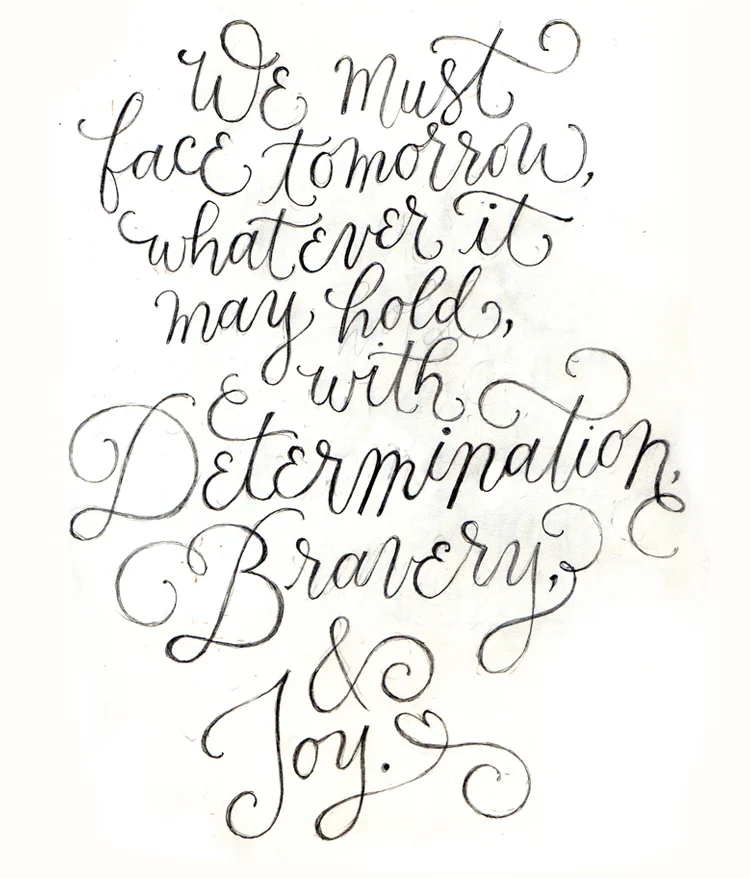 We must
face tomorrow,
whatever it
may hold,
with
Determination,
Bravery,
&
Joy.